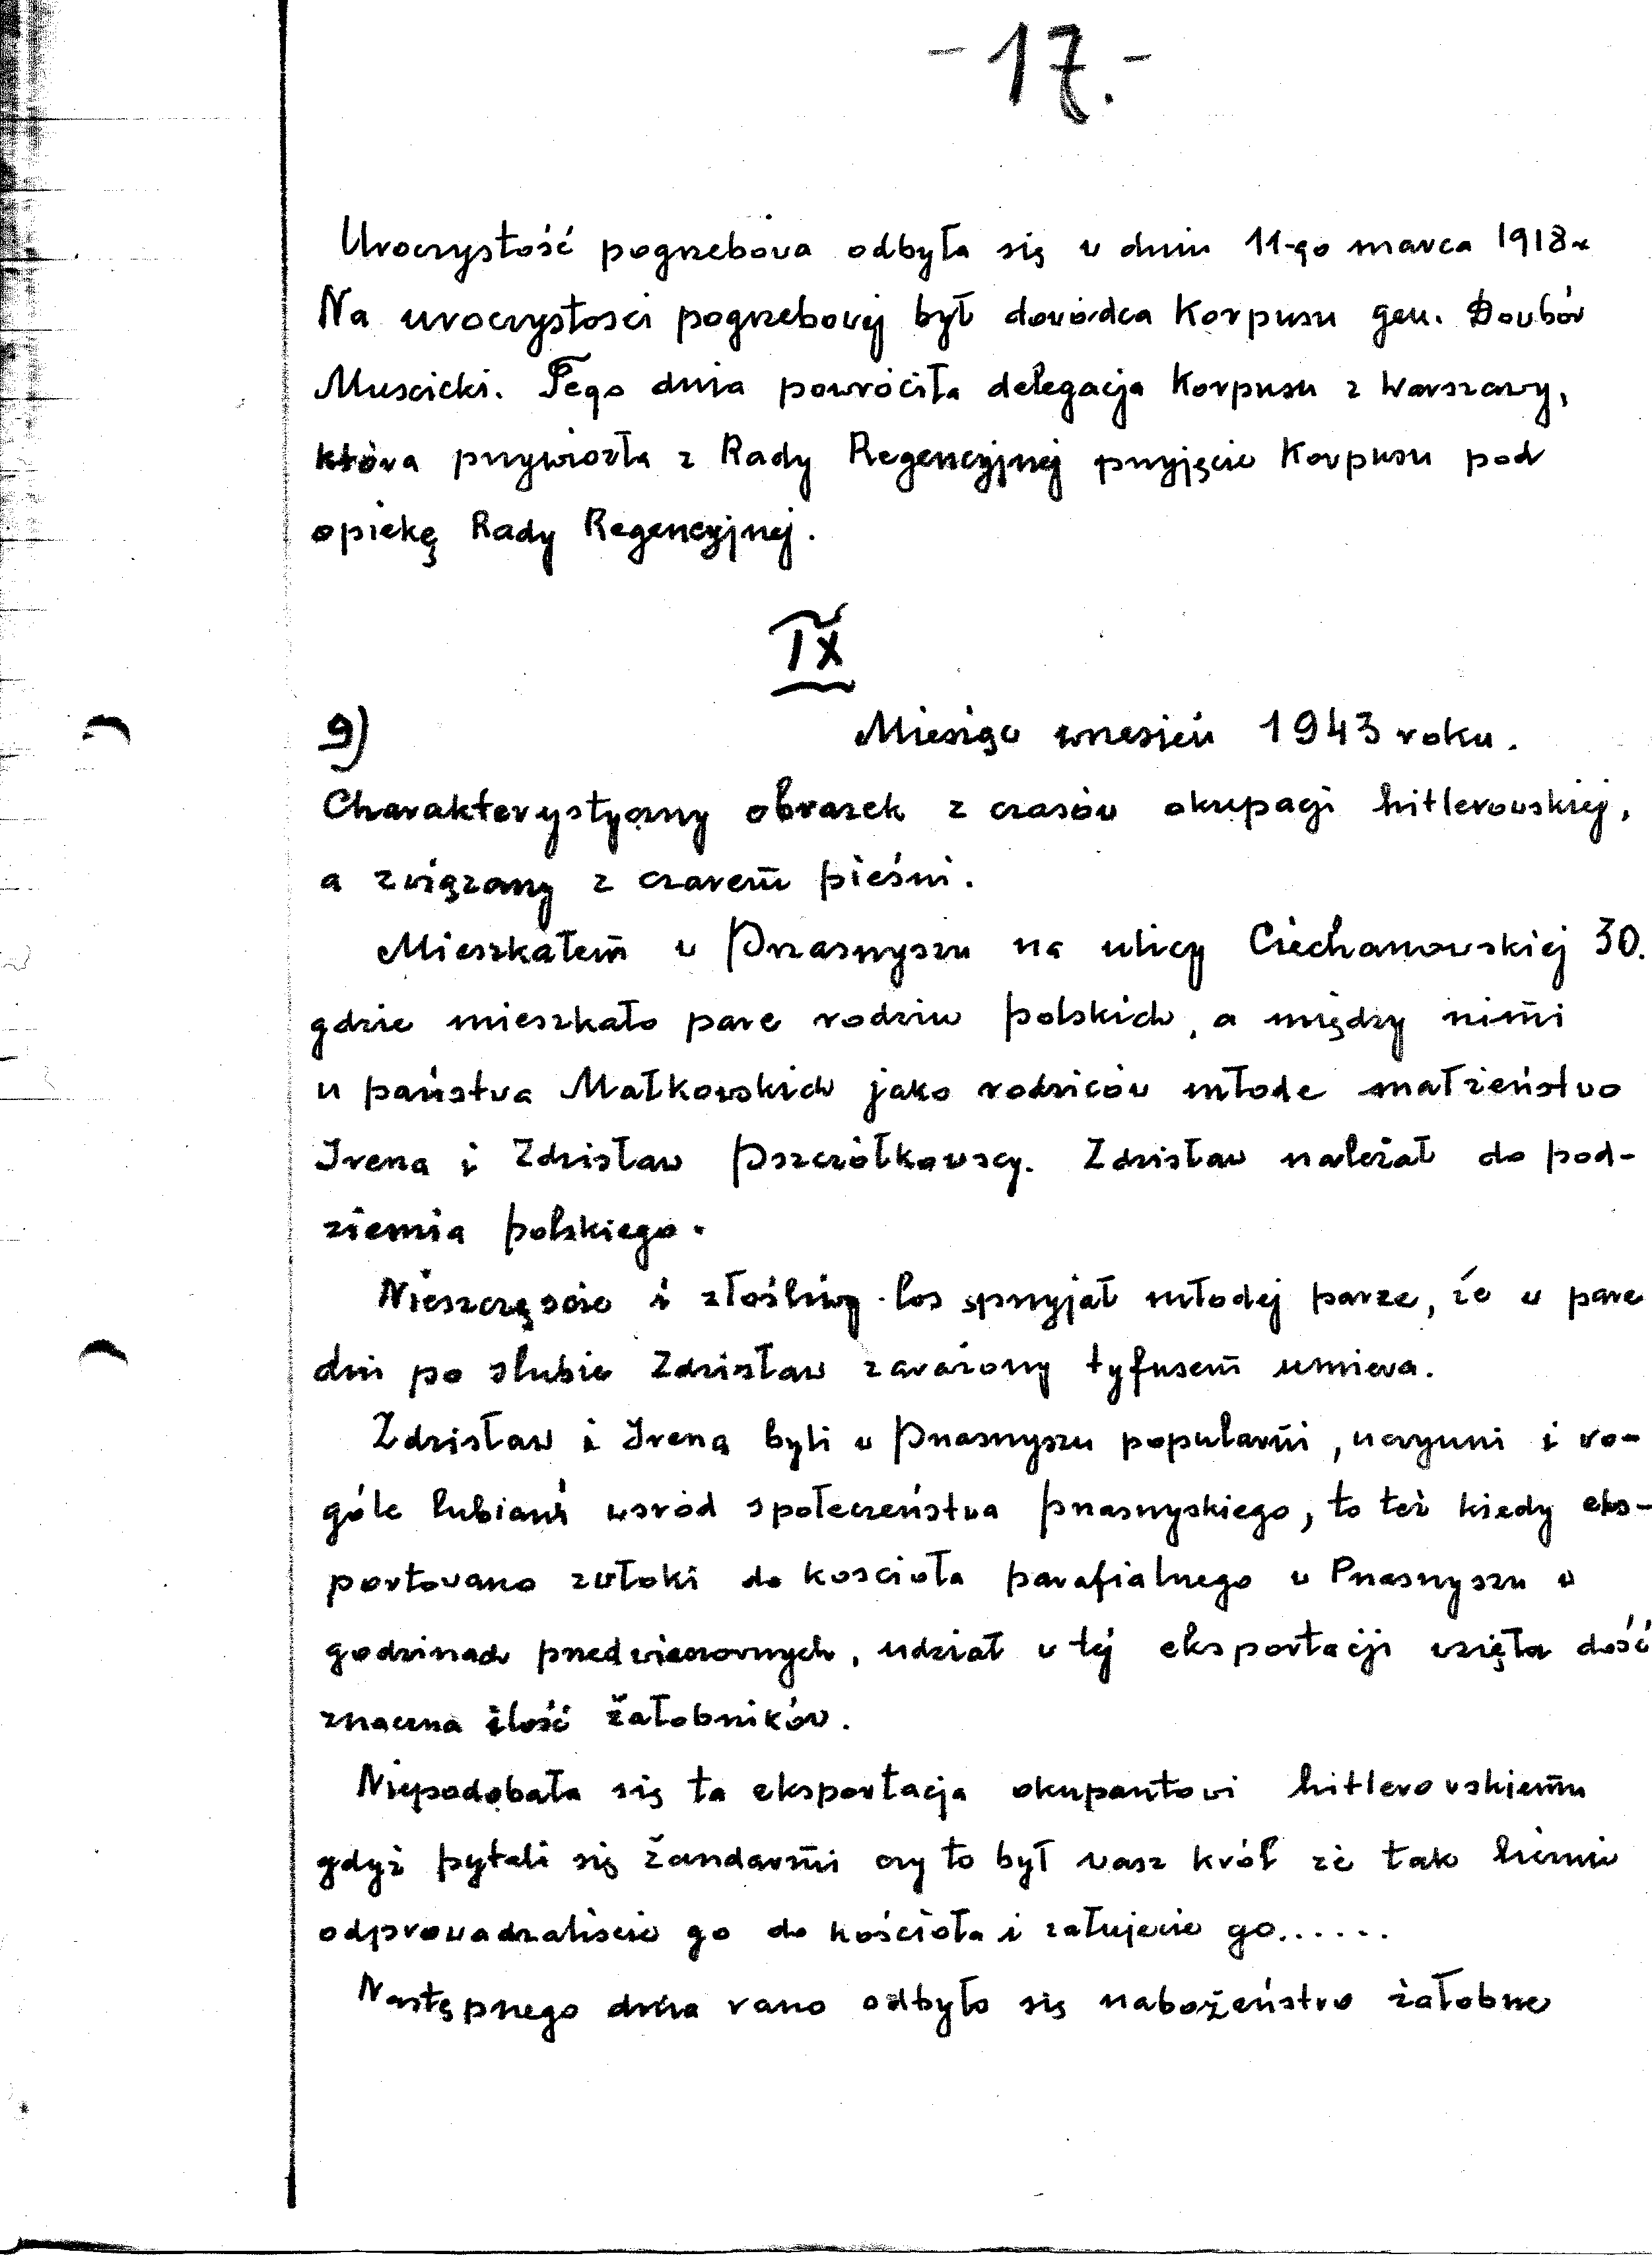 -17.-
Uroczystość pogrzebowa odbyła się w dniu 11-go marca 1918 r
Na uroczystosci pogrzebowej był dowódca Korpusu gen. Dowbór
Muscicki. Tego dnia powróciła delegacja Korpusu z Warszawy,
która przywiozła z Rady Regencyjnej przyjęcie Korpusu pod
opiekę Rady Regencyjnej.
IX
9) Miesiąc wrzesień 1943 roku.
Charakterystyczny obrazek z czasów okupacji hitlerowskiej,
a związany z czarem pieśni.
Mieszkałem w Przasnyszu na ulicy Ciechanowskiej 30.
gdzie mieszkało pare rodzin polskich, a między nimi
u państwa Małkowskich jako rodziców młode małżeństwo
Irena i Zdzisław Pszczółkowscy. Zdzisław należał do pod-
ziemia polskiego.
Nieszczęście i złośliwy los sprzyjał młodej parze, że w pare
dni po slubie Zdzisław zarażony tyfusem umiera.
Zdzisław i Irena byli w Przasnyszu popularni, uczynni i wo-
góle lubiani wsród społeczeństwa przasnyskiego, to też kiedy eks-
portowano zwłoki do koscioła parafialnego w Przasnyszu w
godzinach przedwieczornych, udział w tej eksportacji wzięła dość
znaczna ilość żałobników.
Niepodobała się ta eksportacja okupantowi hitlerowskiemu
gdyż pytali się żandarmi czy to był wasz król że tak licznie
odprowadzaliscie go do kościoła i załujecie go......
Następnego dnia rano odbyło się nabożeństwo żałobne